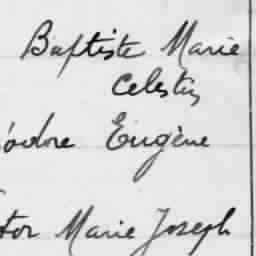 Baptiste Marie
Celestin
odore Eugène
tor Marie Joseph